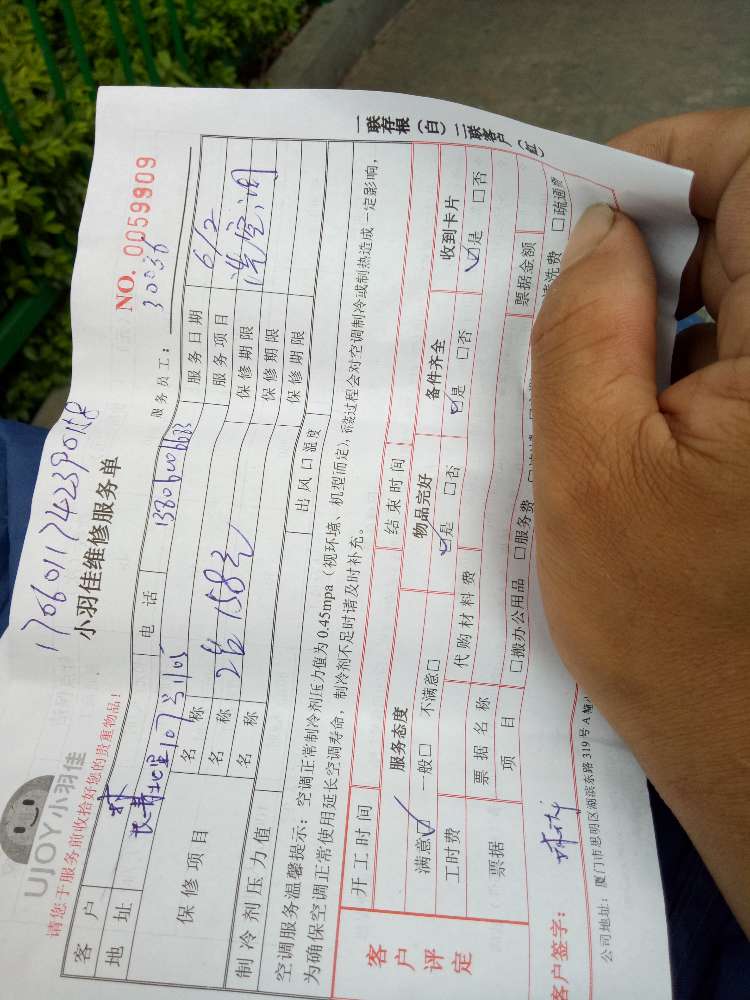 1706011742390158
UJOY小羽佳
小羽佳维修服务单
NO. 0059909
请您于服务前收拾好您的贵重物品!
服务员工: 30036
客户 林
电话
服务日期 6/2
地址
服务项目 洗空调
保修项目
名称
保修期限
名称 2台 158元
保修期限
名称
保修期限
制冷剂压力值
出风口温度
空调服务温馨提示:空调正常制冷剂压力值为0.45mpa(视环境、机型而定),
过程会对空调制冷或制热造成一定影响,
为确保空调正常使用延长空调寿命,制冷剂不足时请及时补充。
一联存根(白)二联客户(红)
开工时间
结束时间
客户评定
服务态度
物品完好
备件齐全
收到卡片
满意☑ 一般□ 不满意□
☑是 □否
☑是 □否
☑是 □否
工时费
代购材料费
票据
票据名称
票据金额
项目
□搬办公用品 □服务费
清洗费 □疏通费
客户签字:
公司地址:厦门市思明区湖滨东路319号A